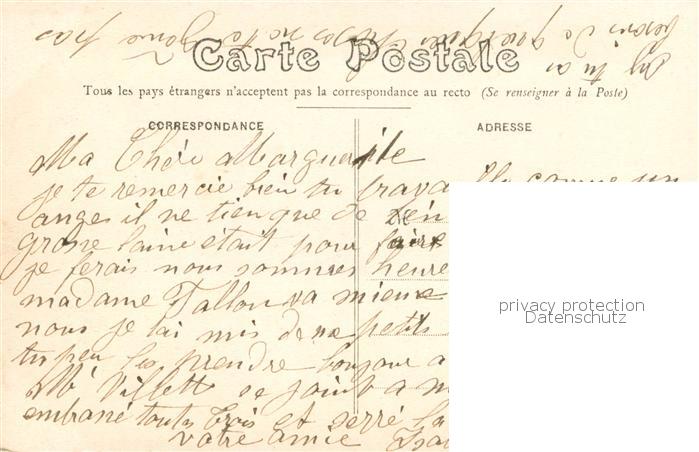 Carte Postale
Tous les pays étrangers n'acceptent pas la correspondance au recto (Se renseigner à la Poste)
CORRESPONDANCE
ADRESSE
Ma Chère Marguerite
je te remercie bien tu travaille comme un
anges il ne tien que de
grosse laine était pour faire
je ferais nous sommes heure
madame Tallon va mieux
nous je lai mis de petits
tu peu les prendre bonjour a
Mr Villette se joint a m
embrassé toutes trois et serré la
votre amie
privacy protection
Datenschutz